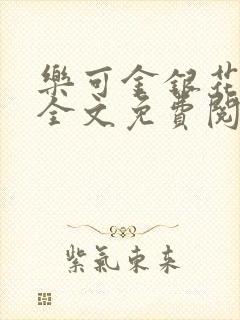 樂可金銀花
全文免費閱
紫氣東來